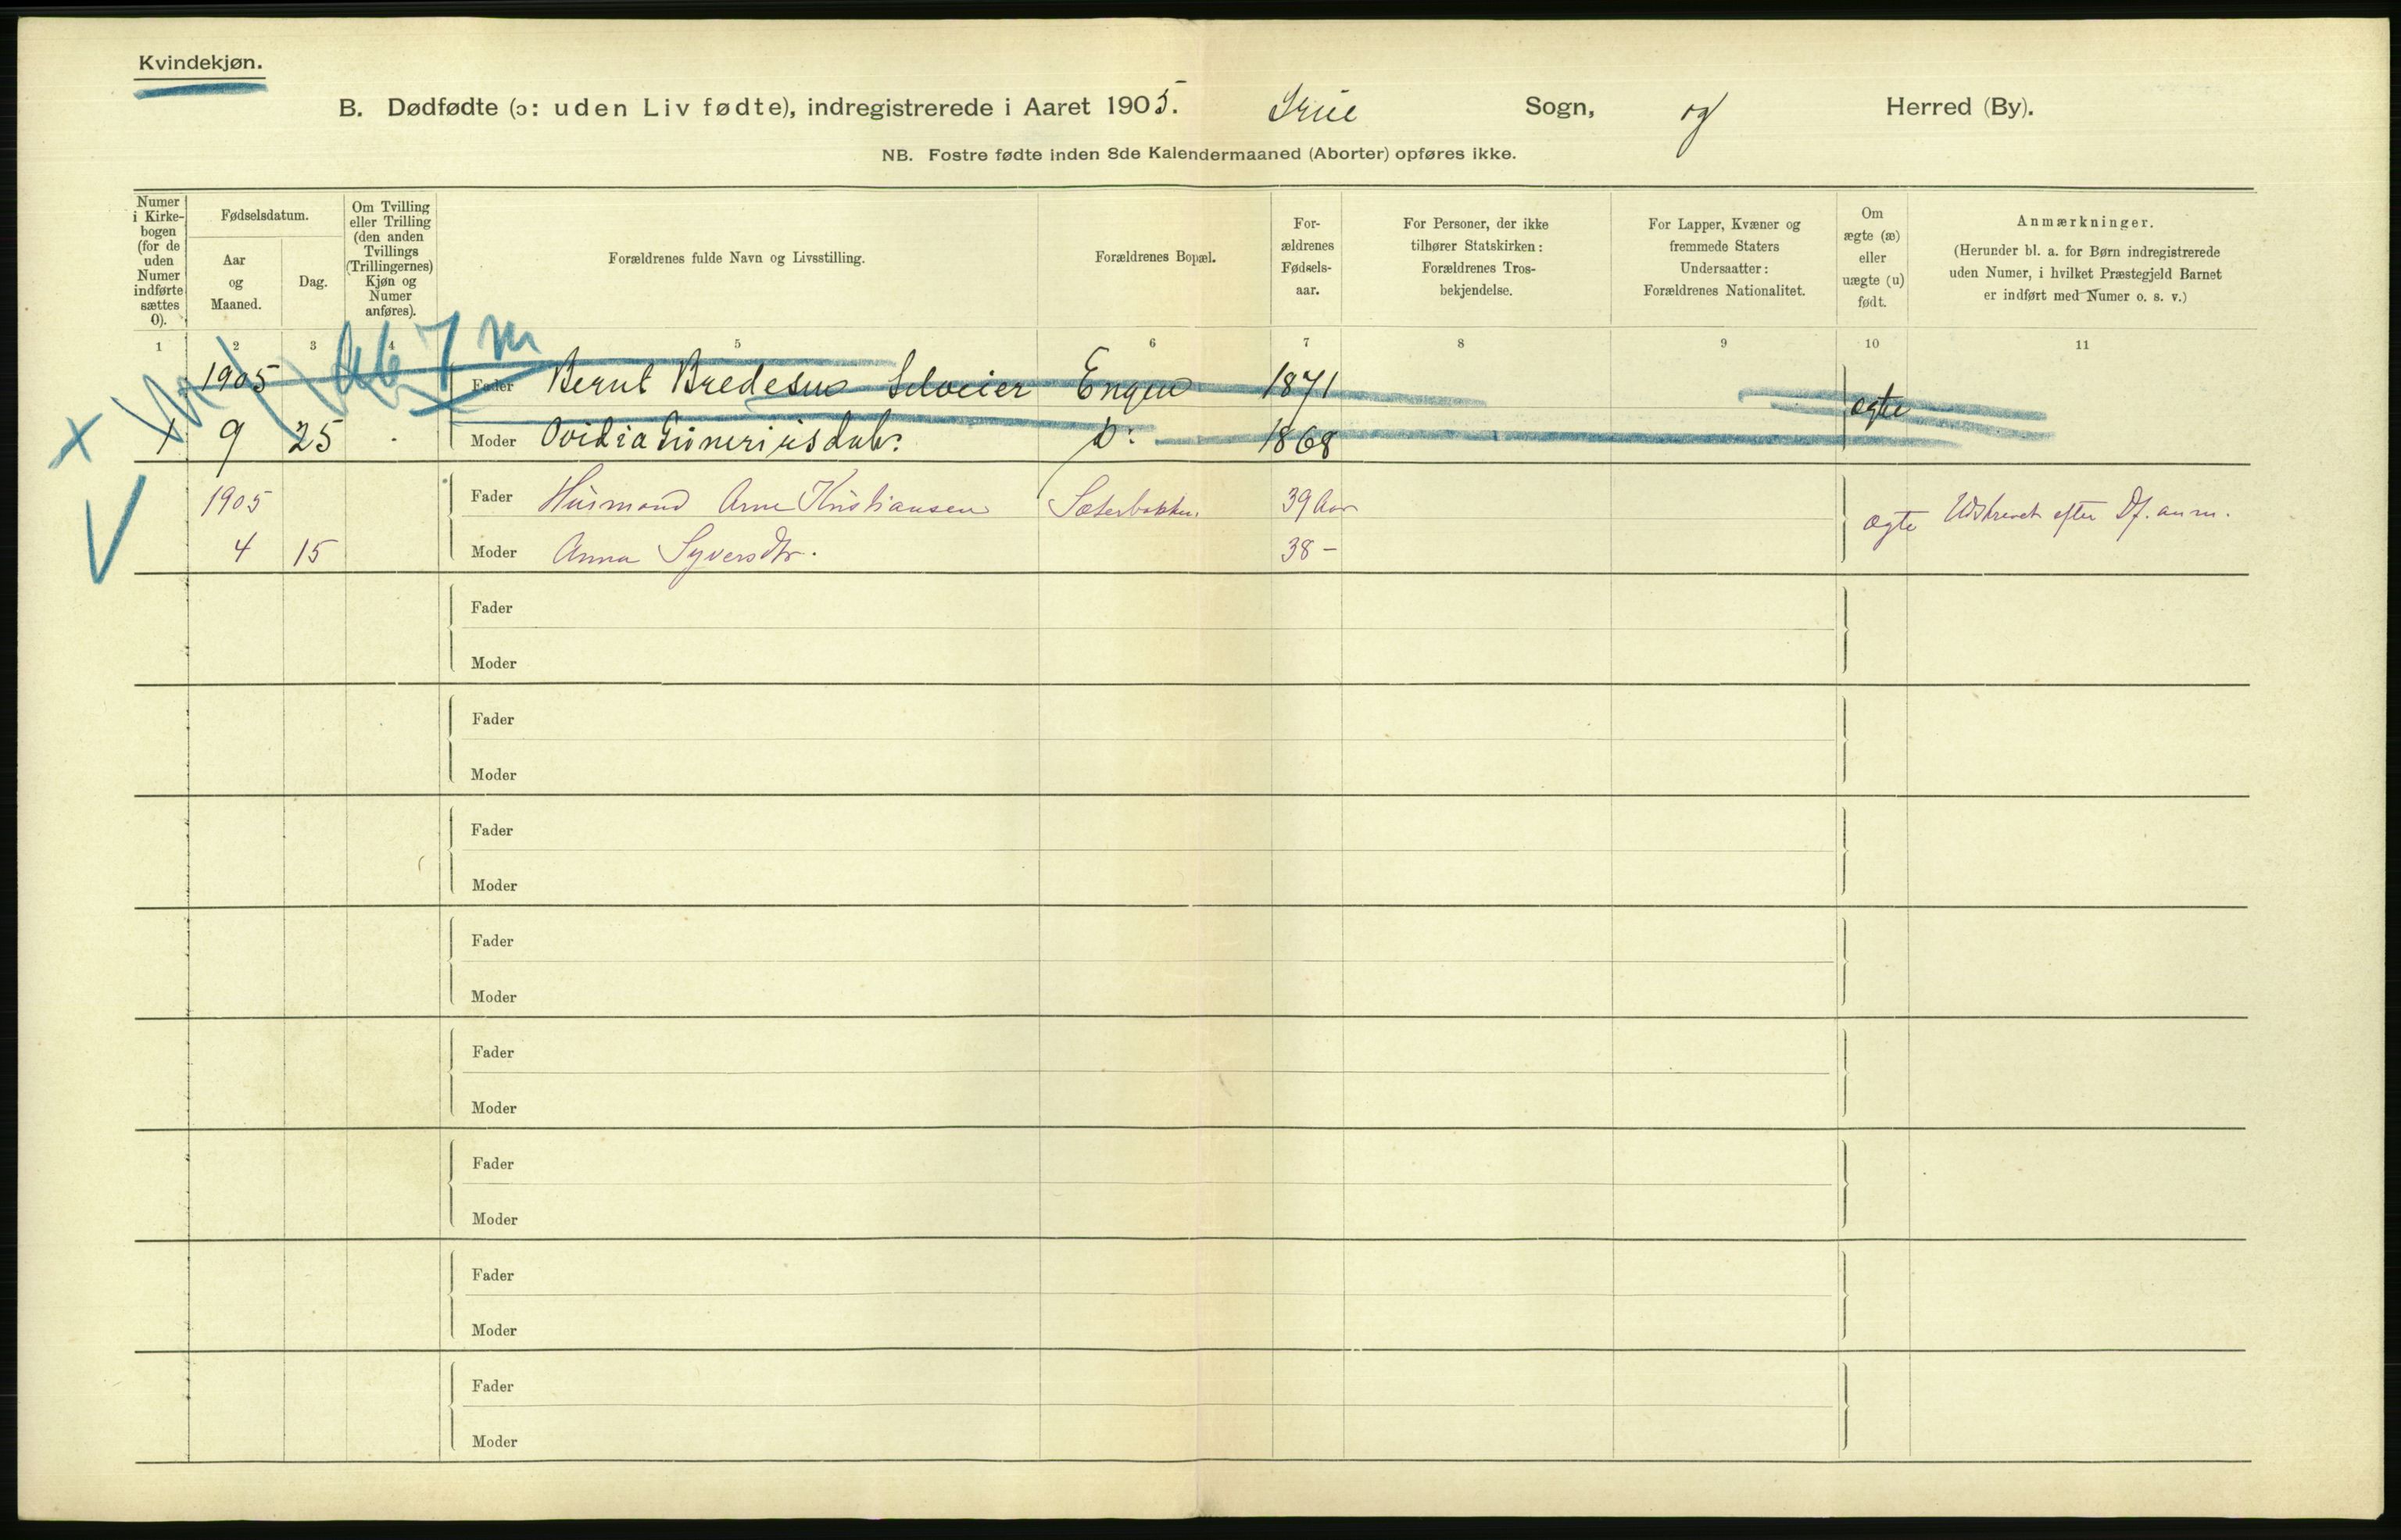 Kvindekjøn.
B. Dødfødte (ɔ: uden Liv fødte), indregistrerede i Aaret 1905. Grue Sogn, og Herred (By).
NB. Fostre fødte inden 8de Kalendermaaned (Aborter) opføres ikke.
Numer i Kirkebogen (for de uden Numer indførte sættes 0).
Fødselsdatum.
Aar og Maaned.
Dag.
Om Tvilling eller Trilling (den anden Tvillings (Trillingernes) Kjøn og Numer anføres).
Forældrenes fulde Navn og Livsstilling.
Forældrenes Bopæl.
Forældrenes Fødselsaar.
For Personer, der ikke tilhører Statskirken: Forældrenes Trosbekjendelse.
For Lapper, Kvæner og fremmede Staters Undersaatter: Forældrenes Nationalitet.
Om ægte (æ) eller uægte (u) født.
Anmærkninger.
(Herunder bl. a. for Børn indregistrerede uden Numer, i hvilket Præstegjeld Barnet er indført med Numer o. s. v.)
1 2 3 4 5 6 7 8 9 10 11
1905 Fader Bernt Bredesen Selveier Engen 1871 ægte
x 1 9 25 . Moder Ovidia Guneriusdatr. Do: 1868
V 1905 Fader Husmand Arne Kristiansen Sæterbakken 39 Aar ægte Udskrevet efter Df. anm.
4 15 Moder Anna Syversdtr. 38 –
Fader
Moder
Fader
Moder
Fader
Moder
Fader
Moder
Fader
Moder
Fader
Moder
Fader
Moder
Fader
Moder